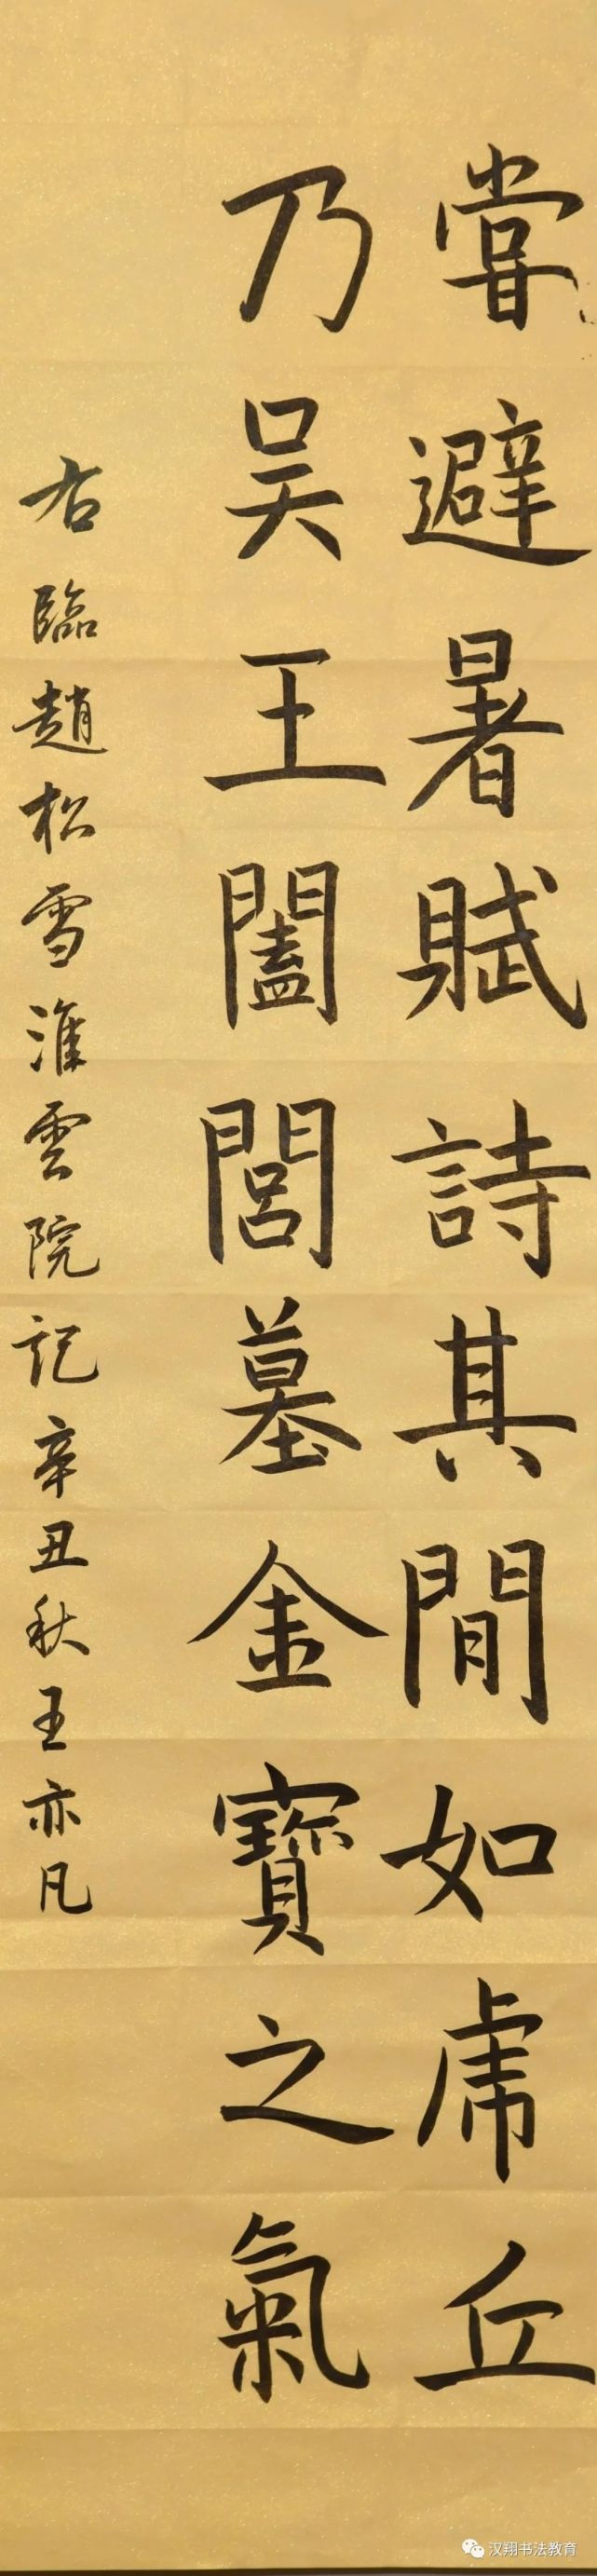 甞避暑賦詩其間如虎丘
乃吴王闔閭墓金寶之氣
右臨趙松雪淮雲院記辛丑秋王亦凡
汉翔书法教育